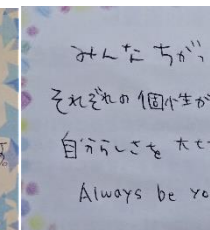 みんなちがっ
それぞれの個性が
自分らしさを大
Always be yo